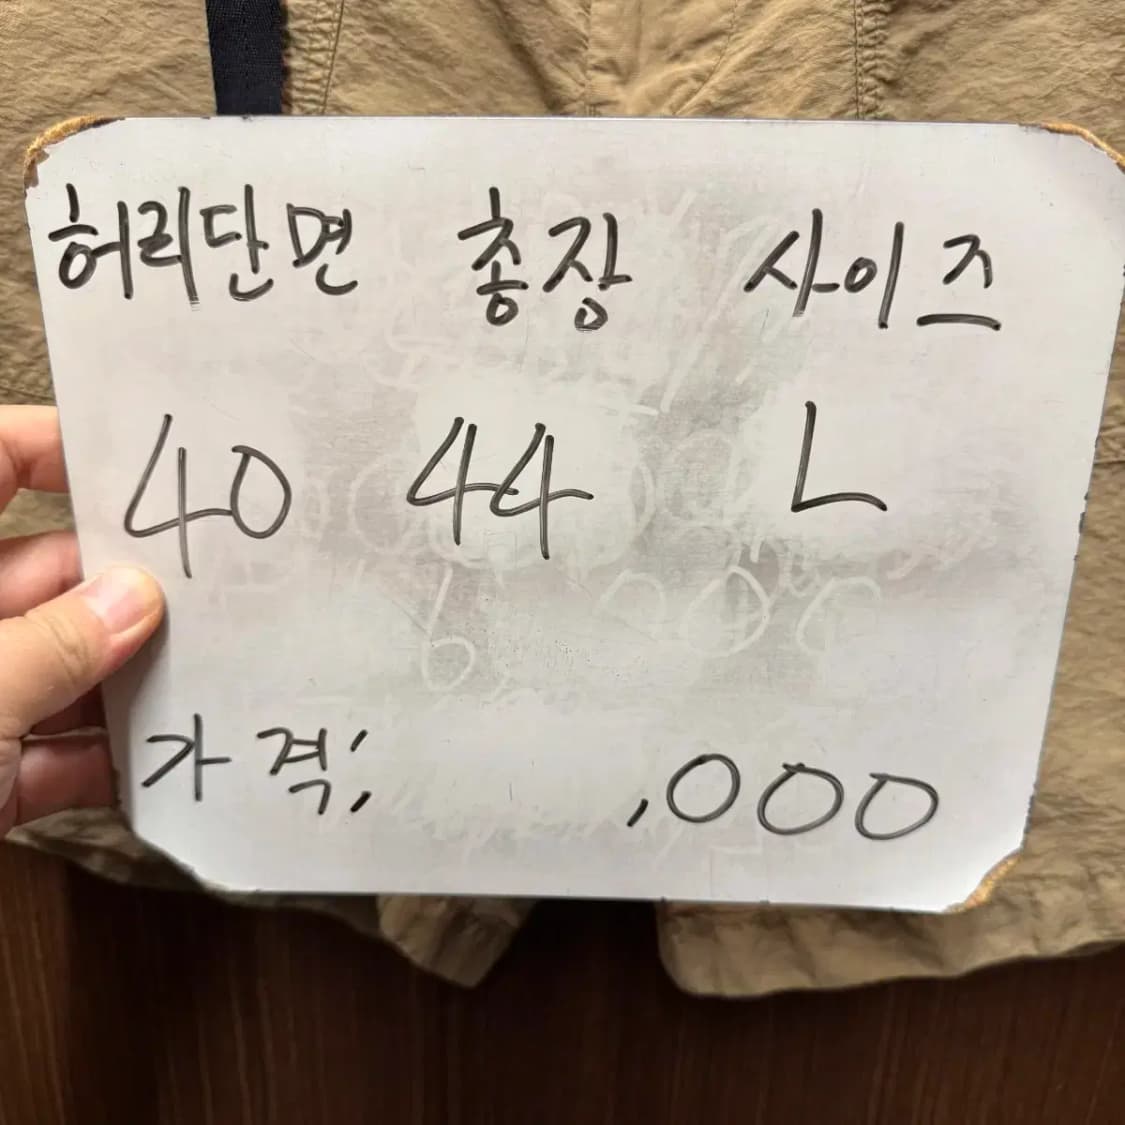 허리단면 총장 사이즈
40 44 L
가격: ,000